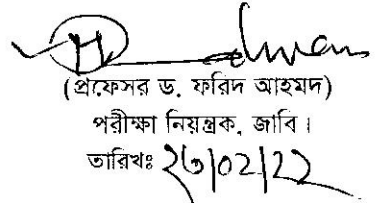 (প্রফেসর ড. ফরিদ আহমদ)
পরীক্ষা নিয়ন্ত্রক, জাবি।
তারিখঃ ২৬/০২/২২